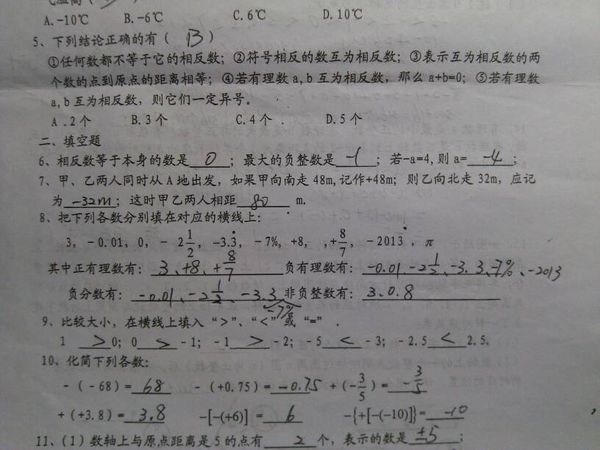 A.-10℃ B.-6℃ C.6℃ D.10℃
5、下列结论正确的有（ B ）
①任何数都不等于它的相反数；②符号相反的数互为相反数；③表示互为相反数的两
个数的点到原点的距离相等；④若有理数a,b互为相反数，那么a+b=0；⑤若有理数
a,b互为相反数，则它们一定异号。
A .2个 B.3个 C.4个 . D.5个
二、填空题
6、相反数等于本身的数是 0 ；最大的负整数是 -1 ；若-a=4,则a= -4 ；
7、甲、乙两人同时从A地出发，如果甲向南走48m,记作+48m；则乙向北走32m，应记
为 -32m ；这时甲乙两人相距 80 m.
8、把下列各数分别填在对应的横线上：
3，-0.01，0，-2 1/2，-3.3̇，-7%，+8，,+8/7，-2013，π
其中正有理数有：3、+8、+8/7 负有理数有：-0.01、-2 1/2、-3.3、7%、-2013
负分数有：-0.01、-2 1/2、-3.3 非负整数有：3.0.8
-7%
9、比较大小，在横线上填入“>”、“<”或“=”.
1 > 0; 0 > -1; -1 > -2; -5 < -3; -2.5 < 2.5.
10、化简下列各数：
-(-68)= 68 -(+0.75)= -0.75 +(-3/5)= -3/5
+(+3.8)= 3.8 -[-(+6)]= 6 -{+[-(-10)]}= -10
11、(1) 数轴上与原点距离是5的点有 2 个，表示的数是 ±5 ；